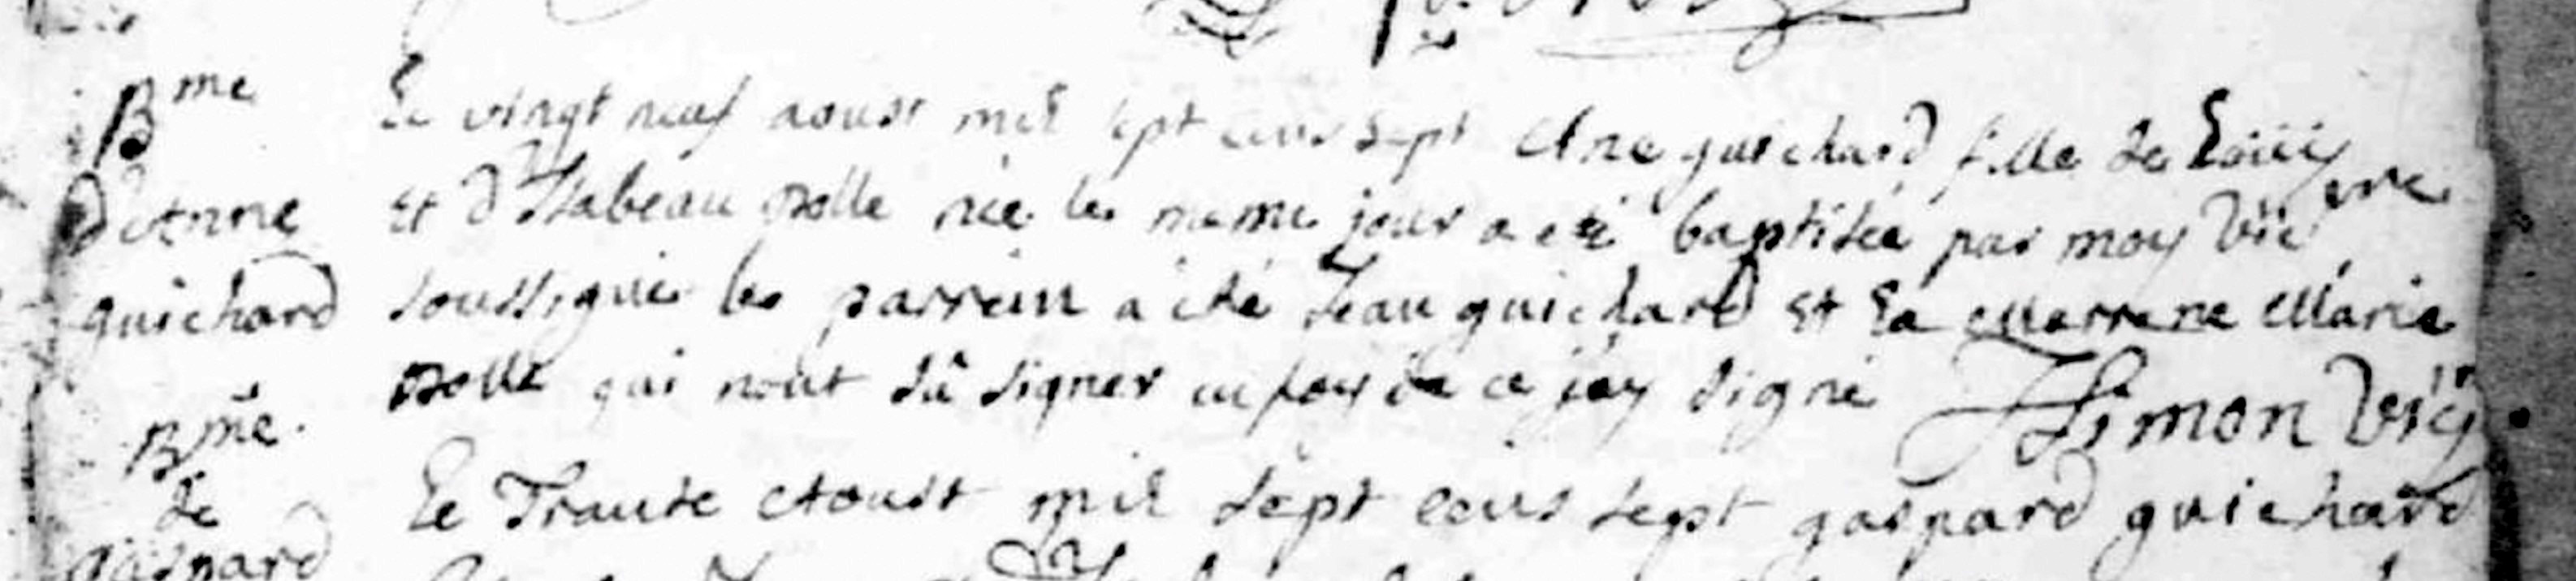 Bme
D'Anne
guichard
Le vingt neuf aoust mil sept cens sept Anne guichard fille de Louis
et d'Isabeau polle née le meme jour a eté baptisée par moy Vicre
soussigné le parrein a été Jean guichard et La Marrene Marie
polle qui nont sû signer en foy de ce jay signé Simon Vicre
Bme
de
gaspard
Le Trante Aoust mil sept cens sept gaspard guichard